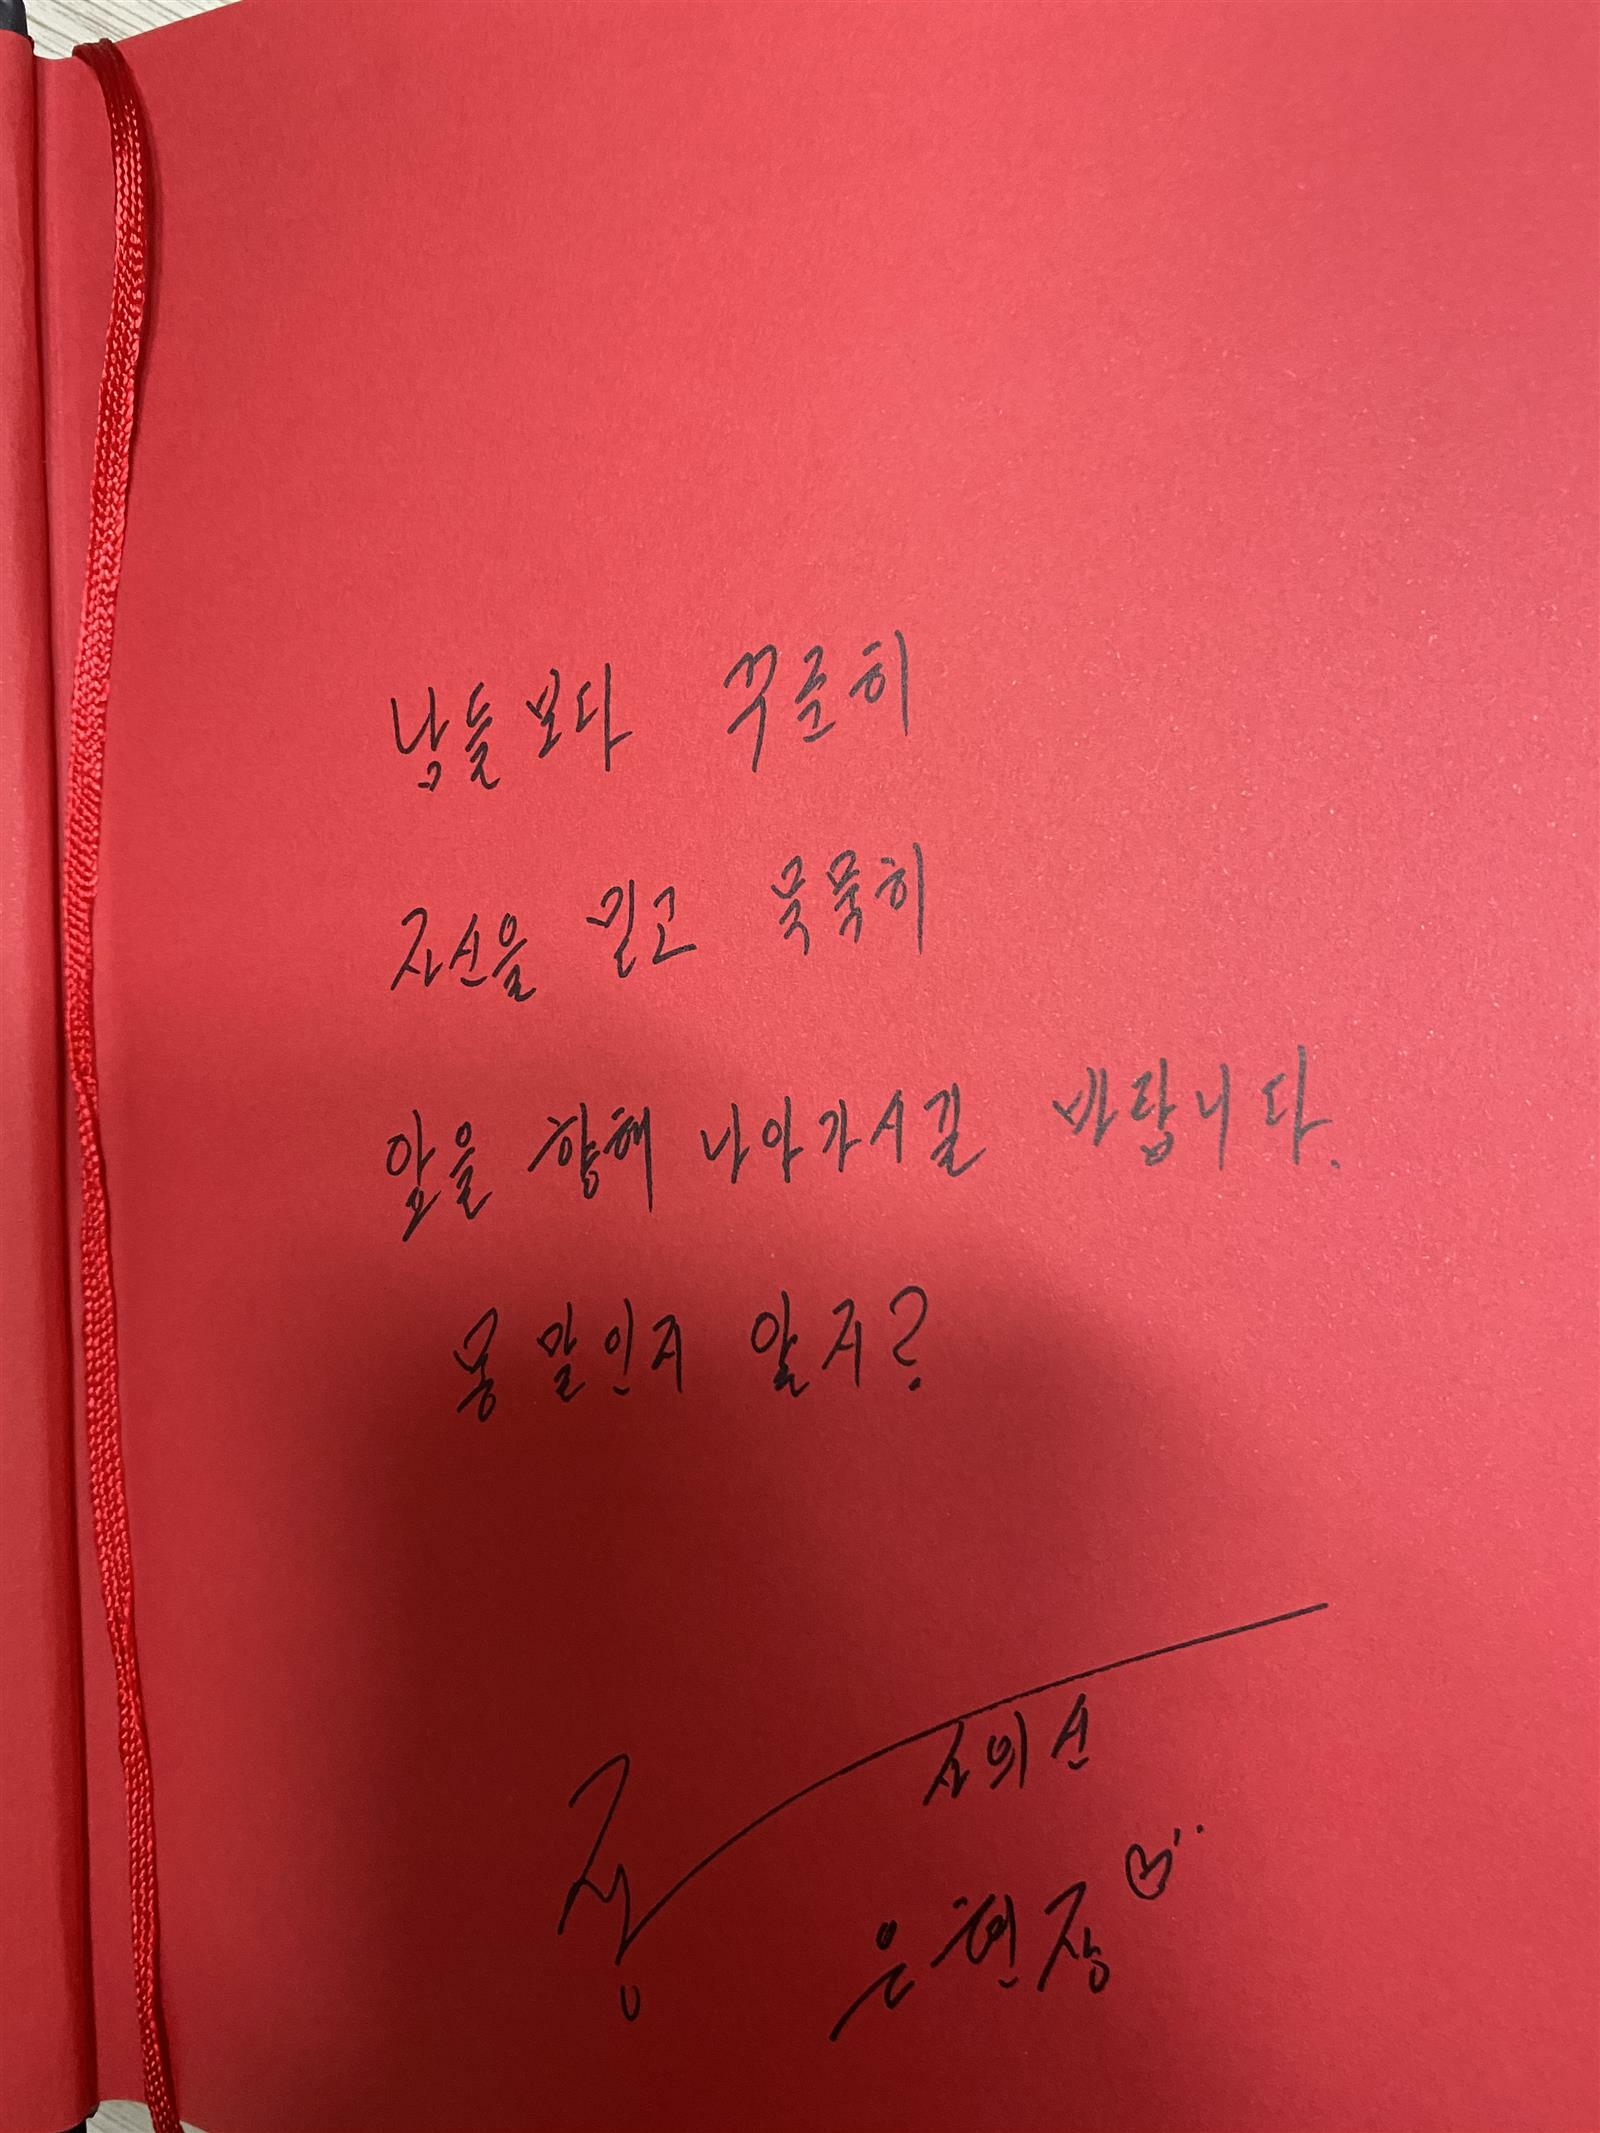 남들보다 꾸준히
자신을 믿고 묵묵히
앞을 향해 나아가시길 바랍니다.
몽 말인지 알지?
은현장